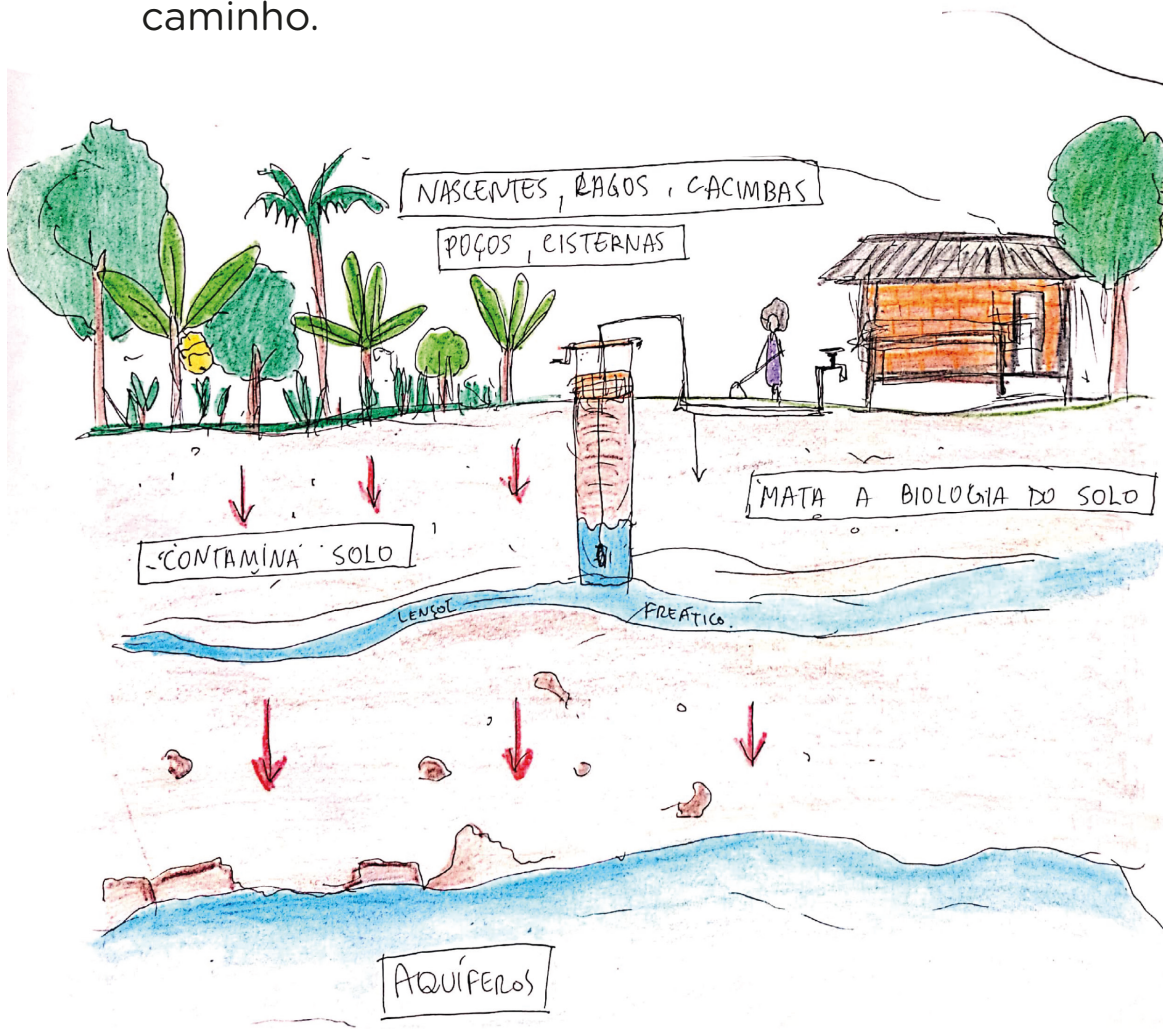 caminho.
NASCENTES, LAGOS, CACIMBAS
POÇOS, CISTERNAS
MATA A BIOLOGIA DO SOLO
CONTAMINA SOLO
LENÇOL FREÁTICO.
AQUÍFEROS